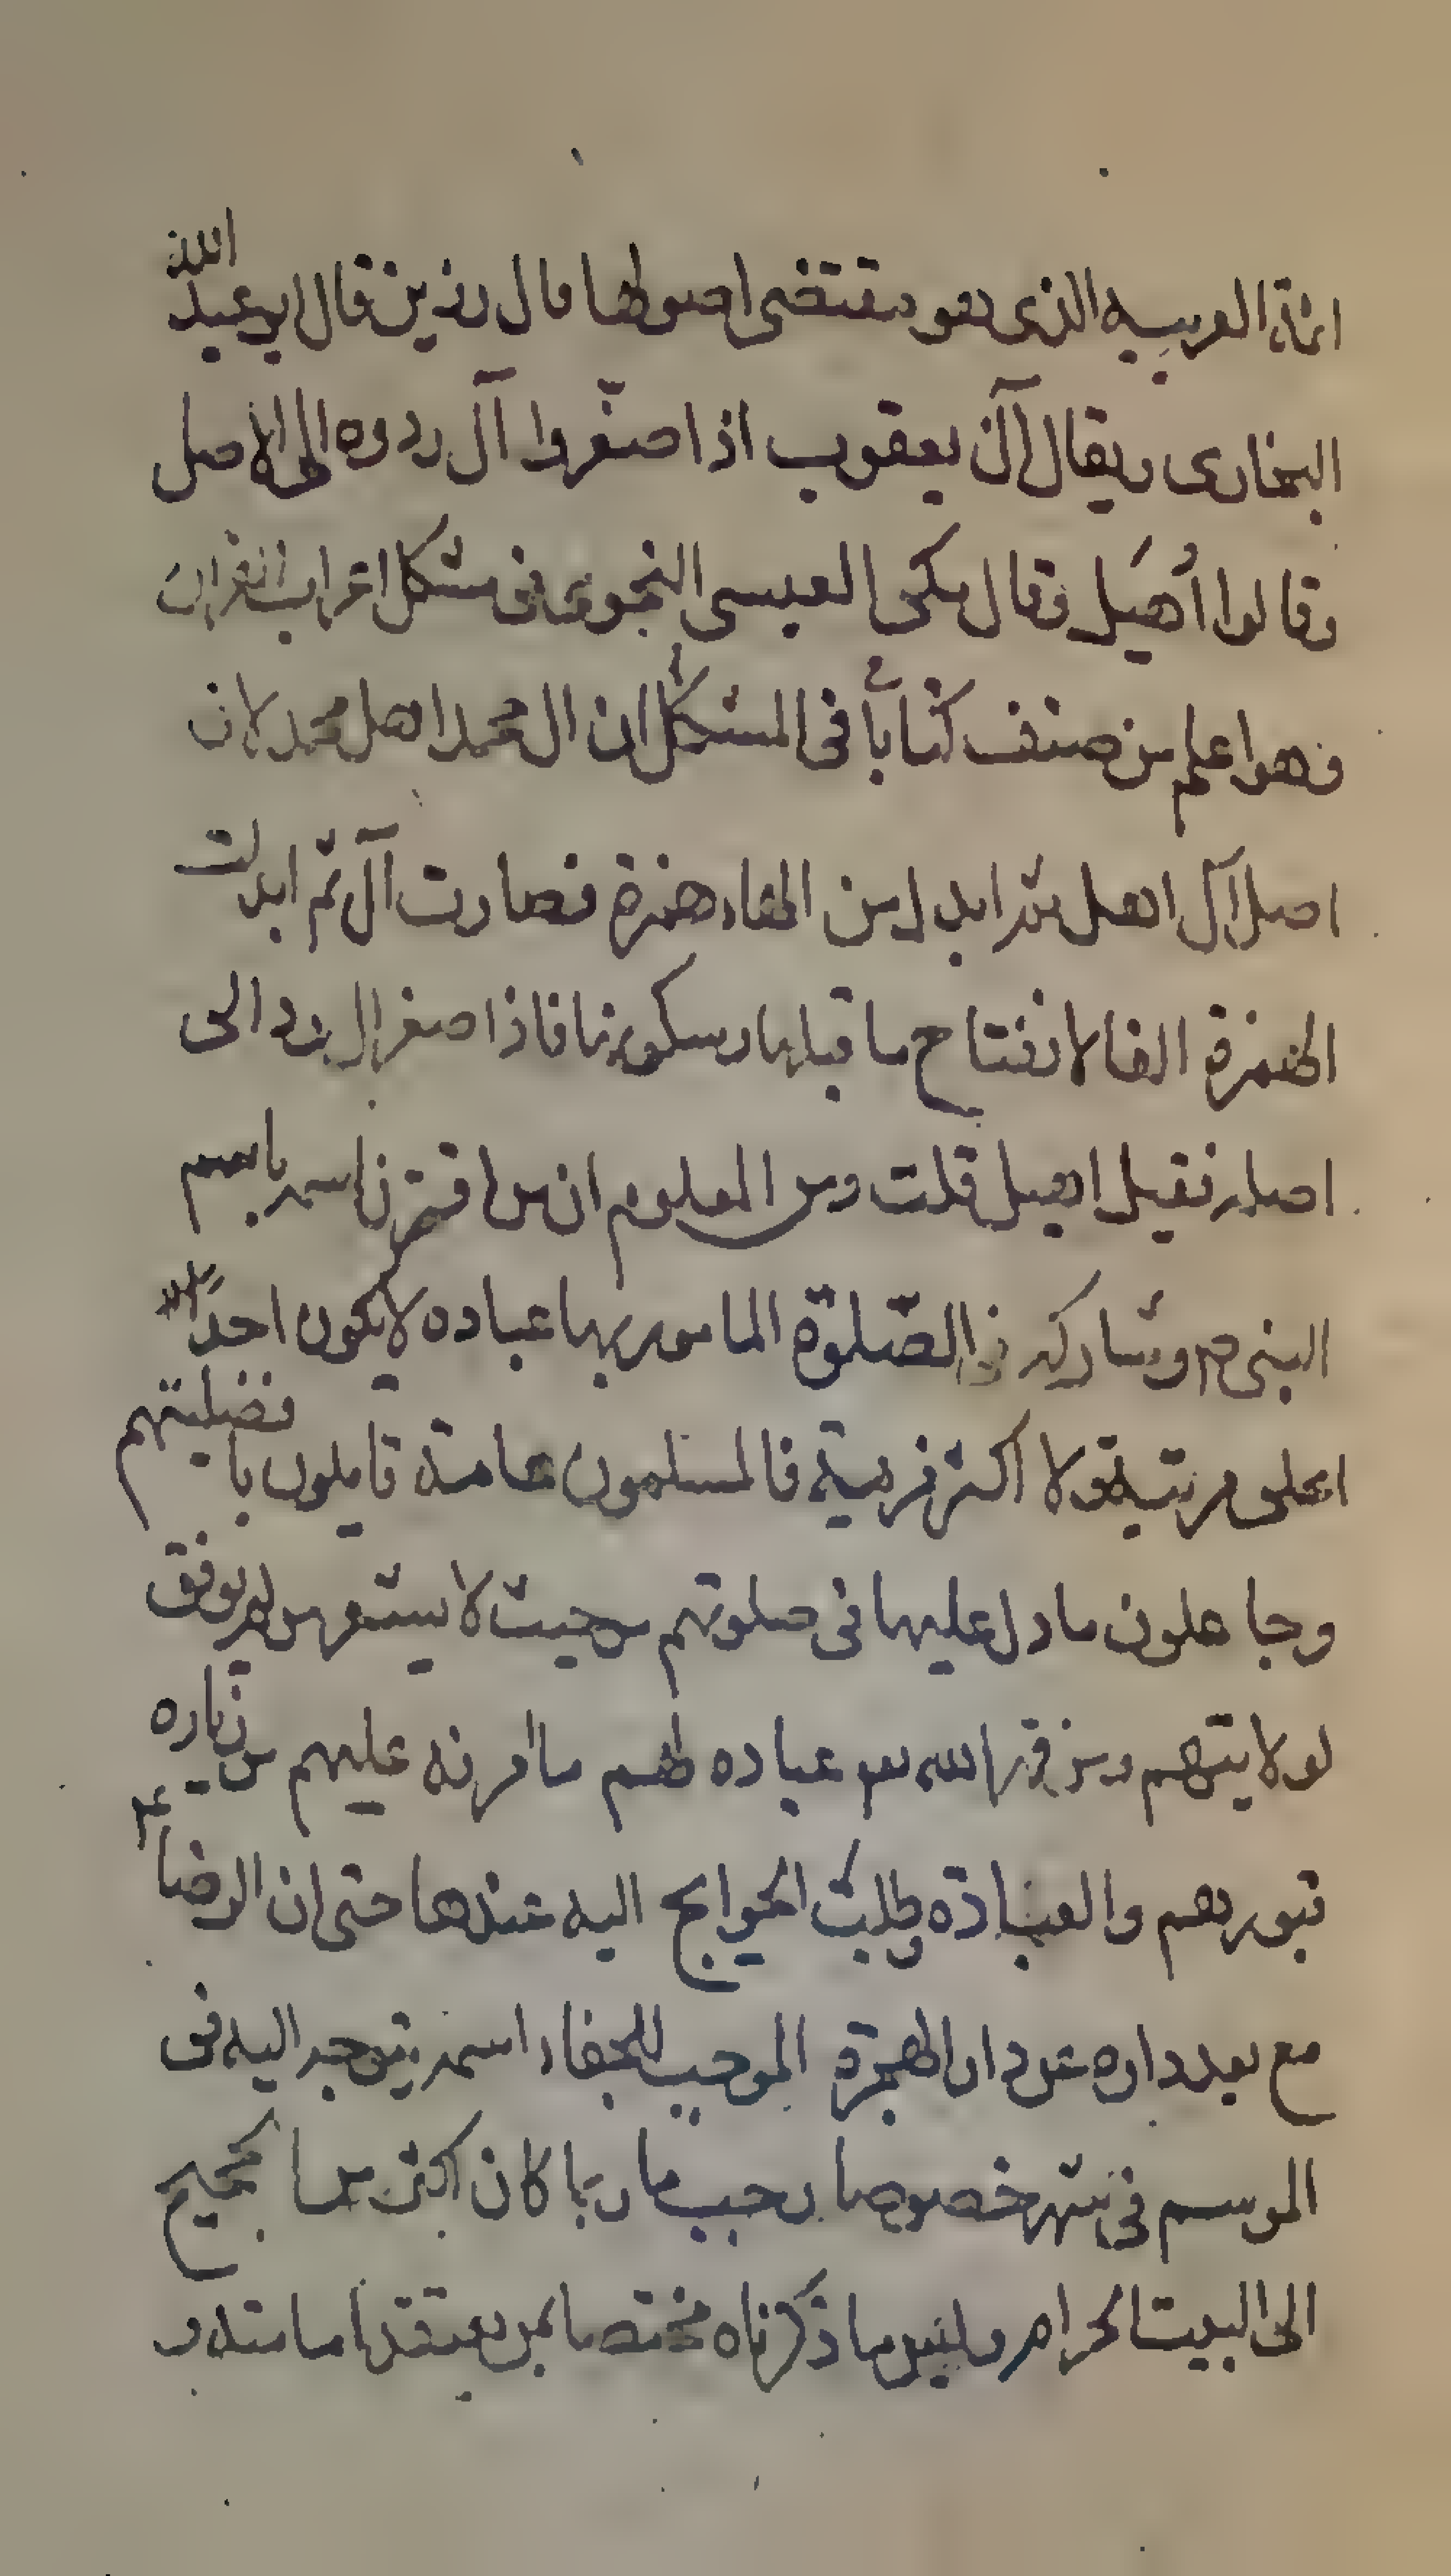 ائمة العربيه الذى هو مقتضى اصولها قال رزين قال ابو عبد الله
البخارى ويقال آل يعقوب اذا صغّروا آل ردوه الى الاصل
وقالوا أُهَيل وقال مكى العيسى النحوى فى مشكل اعراب القران
وهو اعلم من صنف كتاباً فى المشكل ان ال محمد اهل محمد لان
اصل آل اهل ثم ابدل من الهاء همزة فصارت آل ثم ابدلت
الهمزة الفا لانفتاح ما قبلها وسكونها فاذا صغر ال رد الى
اصله فقيل اهيل قلت ومن المعلوم ان من اقترن اسمه باسم
النبى ص وشاركه فى الصّلوة المامور بها عباده لا يكون احدٌ
اعلى مرتبة ولا اكثر مزية فالمسلمون عامة قايلون بافضليتهم
وجاعلون ما دل عليها فى صلوتهم من حيث لا يستشعر من لم يوفق
لولايتهم ومن قهر الله عباده لهم ما افرنه عليهم من زياره
قبورهم والعبادة وطلب الحوايج اليه عندها حتى ان الرضا ع
مع بعد داره عن دار الهجرة الموجب للخفاء اسمه يتوجه اليه فى
الموسم فى شهر خصوصا رجب ما ربما كان اكثر مما يحج
الى البيت الحرام وليس ما ذكرناه مختصا بمن يعتقد امامته و